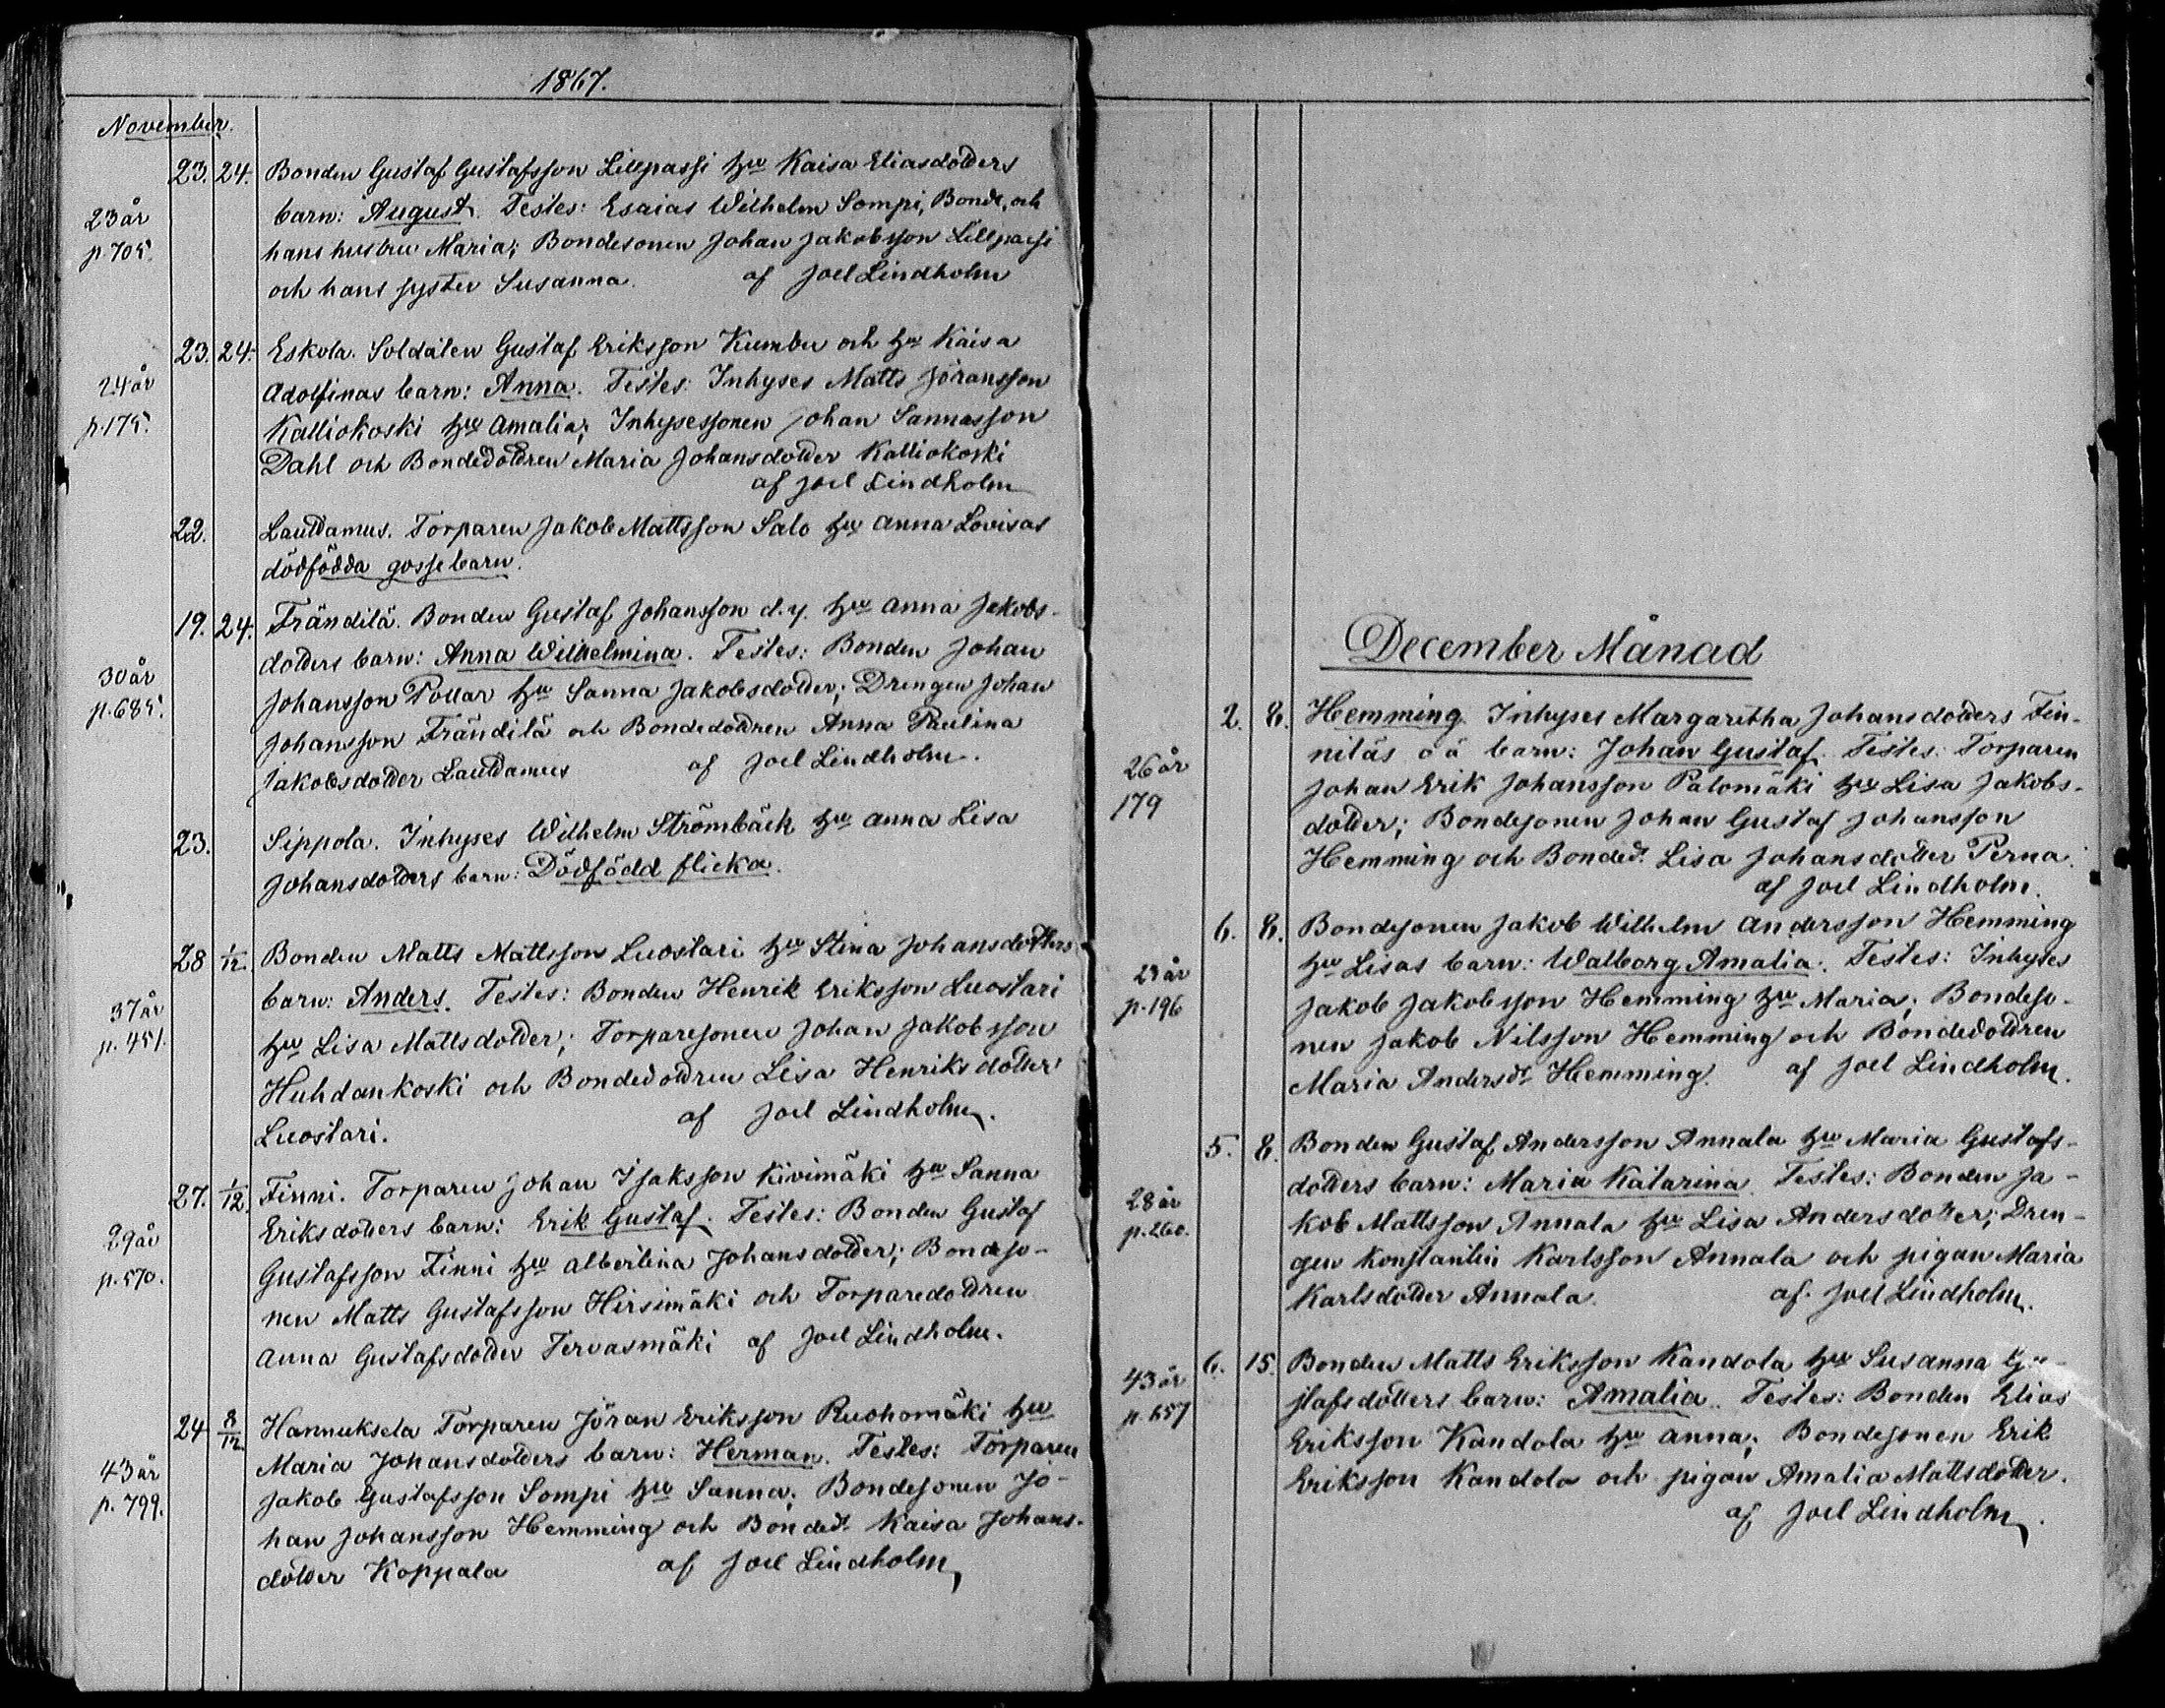 1867.
November.
23. 24. Bonden Gustaf Gustafsson Lillpassi hu Kaisa Eliasdotters
23 år barn: August. Testes: Esaias Wilhelm Sompi, Bonde, och
p. 705. hans hustru Maria; Bondesonen Johan Jakobsson Lillpassi
och hans syster Susanna. af Joel Lindholm
23. 24. Eskola. Soldaten Gustaf Eriksson Kumbu och hu Kaisa
24 år Adolfinas barn: Anna. Testes: Inhyses Matts Jöransson
p. 175. Kalliokoski hu Amalia; Inhysessonen Johan Sannasson
Dahl och Bondedottren Maria Johansdotter Kalliokoski
af Joel Lindholm
22. Lauttamus. Torparen Jakob Mattsson Salo hu Anna Lovisas
dödfödda gossebarn.
19. 24. Frändilä. Bonden Gustaf Johansson d.y. hu Anna Jakobs-
dotters barn: Anna Wilhelmina. Testes: Bonden Johan
30 år Johansson Pollar hu Sanna Jakobsdotter; Drengen Johan
p. 685. Johansson Frändilä och Bondedottren Anna Paulina
Jakobsdotter Lauttamus af Joel Lindholm.
23. Sippola. Inhyses Wilhelm Strömbäck hu Anna Lisa
Johansdotters barn: Dödfödd flicka.
28 1/12. Bonden Matts Mattsson Luostari hu Stina Johansdotters
37 år barn: Anders. Testes: Bonden Henrik Eriksson Luostari
p. 451. hu Lisa Mattsdotter; Torparesonen Johan Jakobsson
Huhdankoski och Bondedottren Lisa Henriksdotter
Luostari. af Joel Lindholm.
27. 1/12. Finni. Torparen Johan Isaksson Kivimäki hu Sanna
29 år Eriksdotters barn: Erik Gustaf. Testes: Bonden Gustaf
p. 570. Gustafsson Finni hu Albertina Johansdotter; Bondeso-
nen Matts Gustafsson Hirsimäki och Torparedottren
Anna Gustafsdotter Tervasmäki af Joel Lindholm.
24 8/12. Hannuksela Torparen Jöran Eriksson Ruohomäki hu
43 år Maria Johansdotters barn: Herman. Testes: Torparen
p. 799. Jakob Gustafsson Sompi hu Sanna; Bondesonen Jo-
han Johansson Hemming och Bondedr Kaisa Johans-
dotter Koppala af Joel Lindholm
December Månad
2. 8. Hemming. Inhyses Margaretha Johansdotters Fin-
26 år niläs o ä barn: Johan Gustaf. Testes: Torparen
179 Johan Erik Johansson Palomäki hu Lisa Jakobs-
dotter; Bondesonen Johan Gustaf Johansson
Hemming och Bondedr Lisa Johansdotter Perna.
af Joel Lindholm.
6. 8. Bondesonen Jakob Wilhelm Andersson Hemming
23 år hu Lisas barn: Walborg Amalia. Testes: Inhyses
p. 196 Jakob Jakobsson Hemming hu Maria; Bondeso-
nen Jakob Nilsson Hemming och Bondedottren
Maria Andersdr Hemming. af Joel Lindholm.
5. 8. Bonden Gustaf Andersson Annala hu Maria Gustafs-
28 år dotters barn: Maria Katarina. Testes: Bonden Ja-
p. 260. kob Mattsson Annala hu Lisa Andersdotter; Dren-
gen Konstantin Karlsson Annala och pigan Maria
Karlsdotter Annala. af Joel Lindholm.
6. 15. Bonden Matts Eriksson Kandola hu Susanna Gu-
43 år stafsdotters barn: Amalia. Testes: Bonden Elias
p. 657 Eriksson Kandola hu Anna; Bondesonen Erik
Eriksson Kandola och pigan Amalia Mattsdotter.
af Joel Lindholm.